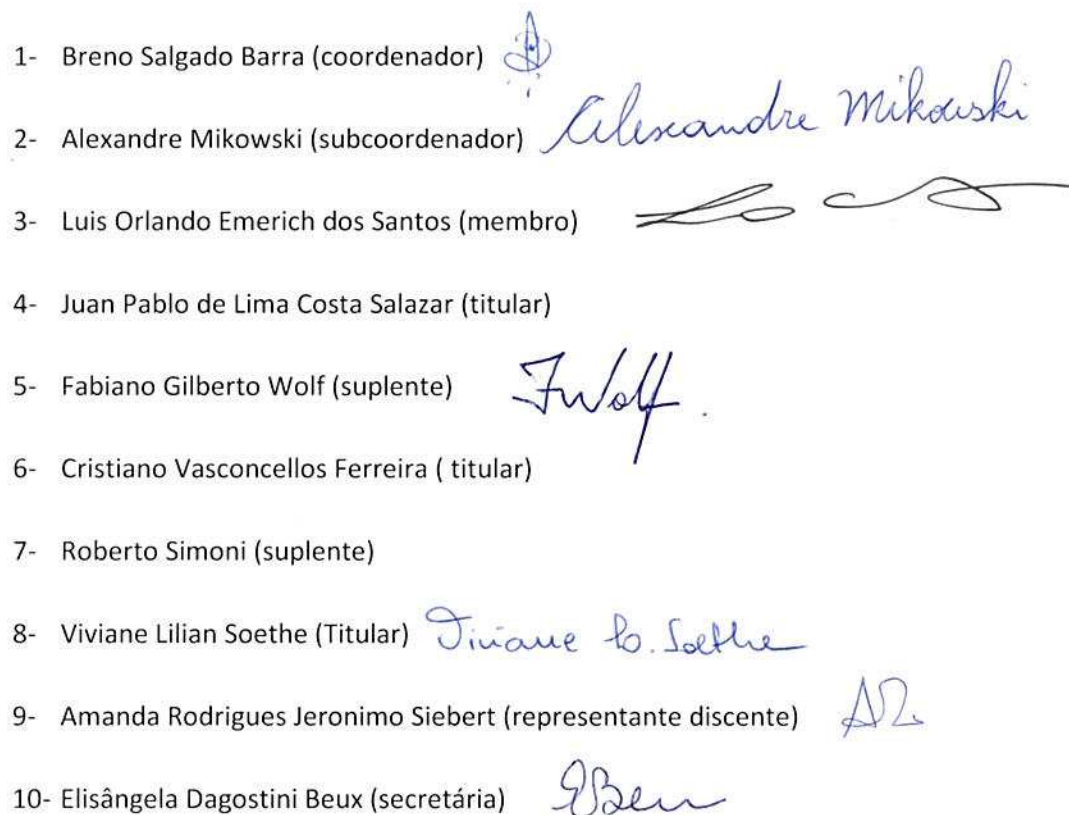 1- Breno Salgado Barra (coordenador)
2- Alexandre Mikowski (subcoordenador) Alexandre Mikowski
3- Luis Orlando Emerich dos Santos (membro)
4- Juan Pablo de Lima Costa Salazar (titular)
5- Fabiano Gilberto Wolf (suplente) FWolf.
6- Cristiano Vasconcellos Ferreira ( titular)
7- Roberto Simoni (suplente)
8- Viviane Lilian Soethe (Titular) Viviane L. Soethe
9- Amanda Rodrigues Jeronimo Siebert (representante discente)
10- Elisângela Dagostini Beux (secretária) EBeux